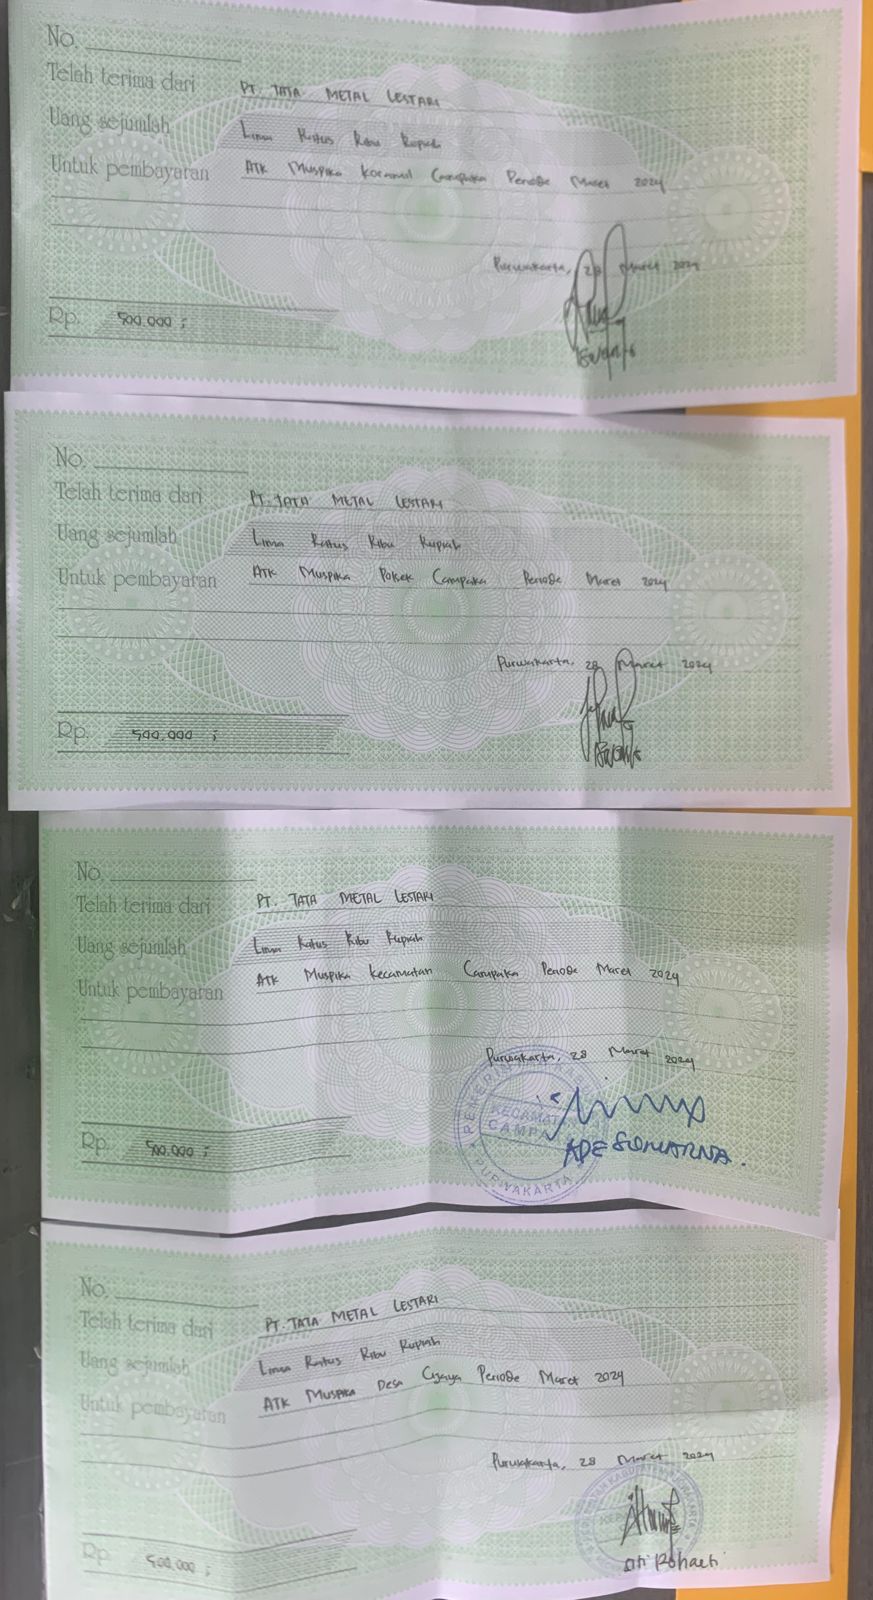 No.
Telah terima dari PT. TATA METAL LESTARI
Uang sejumlah Lima Ratus Ribu Rupiah
Untuk pembayaran ATK Muspika Koramil Campaka Periode Maret 2024
Purwakarta, 28 Maret 2024
Rp. 500.000 ;
No.
Telah terima dari PT. TATA METAL LESTARI
Uang sejumlah Lima Ratus Ribu Rupiah
Untuk pembayaran ATK Muspika Polsek Campaka Periode Maret 2024
Purwakarta, 28 Maret 2024
Rp. 500.000 ;
No.
Telah terima dari PT. TATA METAL LESTARI
Uang sejumlah Lima Ratus Ribu Rupiah
Untuk pembayaran ATK Muspika Kecamatan Campaka Periode Maret 2024
Purwakarta, 28 Maret 2024
KECAMATAN
CAMPA
PURWAKARTA
ADE SUMARNA.
Rp. 500.000 ;
No.
Telah terima dari PT. TATA METAL LESTARI
Uang sejumlah Lima Ratus Ribu Rupiah
Untuk pembayaran ATK Muspika Desa Cijaya Periode Maret 2024
Purwakarta, 28 Maret 2024
Rp. 500.000 ;
Iti Rohaeti